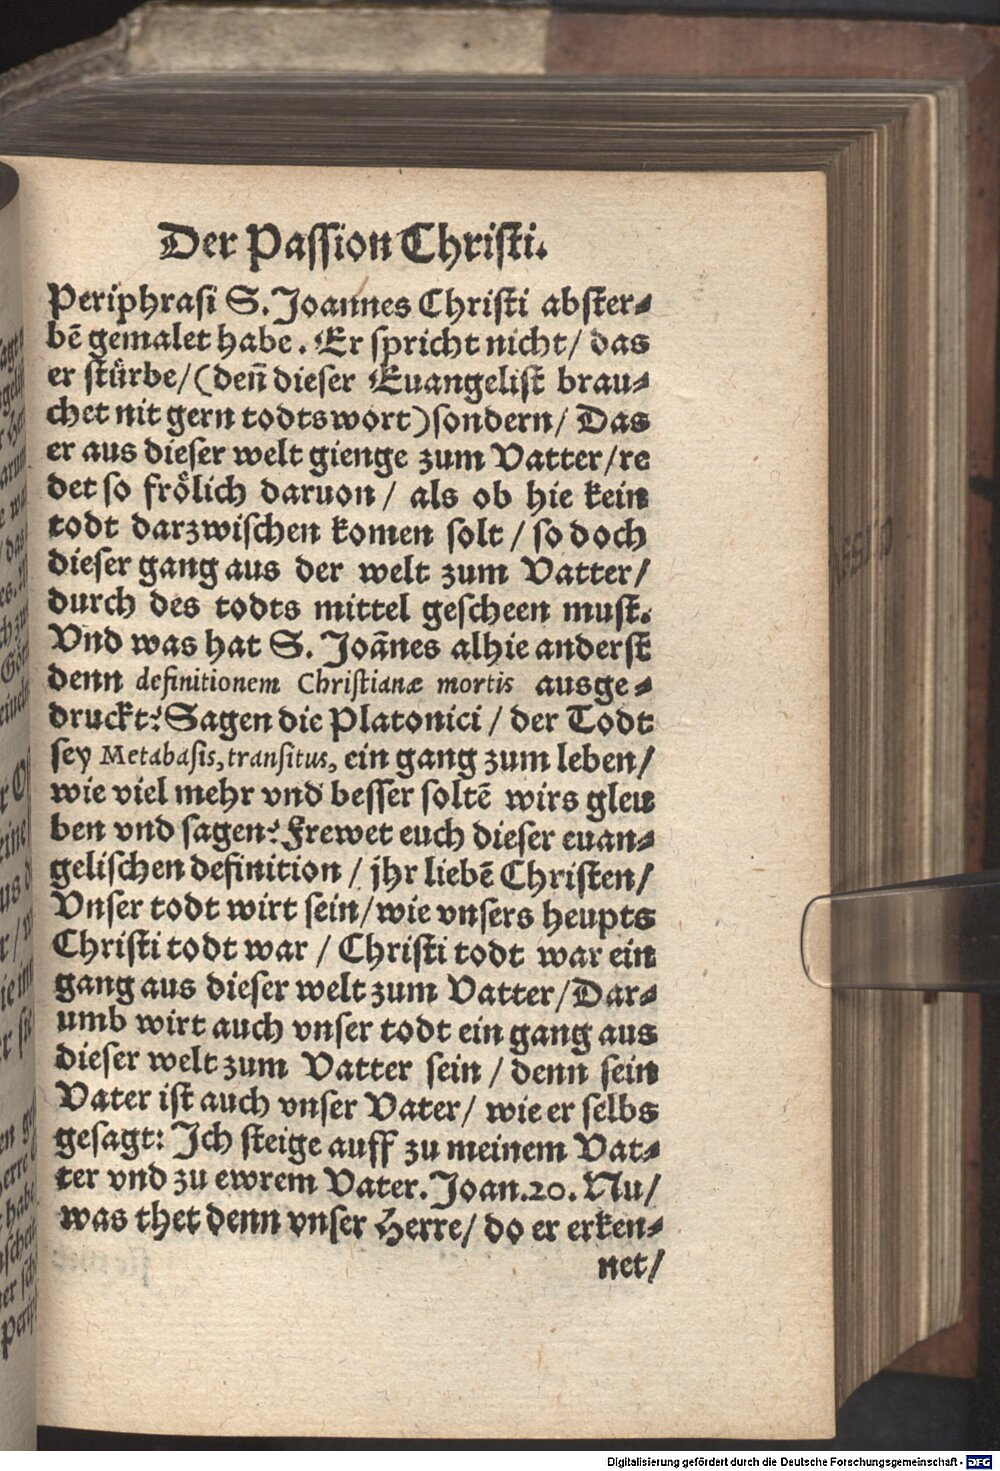 Der Passion Christi.
Periphrasi S. Joannes Christi abster⸗
bē gemalet habe. Er spricht nicht/ das
er stürbe/(deñ dieser Euangelist brau⸗
chet nit gern todts wort) sondern/ Das
er aus dieser welt gienge zum Vatter/re
det so frölich daruon/ als ob hie kein
todt darzwischen komen solt/ so doch
dieser gang aus der welt zum Vatter/
durch des todts mittel gescheen must.
Vnd was hat S. Joãnes alhie anderst
denn definitionem Christianæ mortis ausge⸗
druckt? Sagen die Platonici/ der Todt
sey Metabasis, transitus, ein gang zum leben/
wie viel mehr vnd besser soltē wirs gleu
ben vnd sagen? Frewet euch dieser euan⸗
gelischen definition/ jhr liebē Christen/
Vnser todt wirt sein/wie vnsers heupts
Christi todt war/ Christi todt war ein
gang aus dieser welt zum Vatter/Dar⸗
umb wirt auch vnser todt ein gang aus
dieser welt zum Vatter sein/ denn sein
Vater ist auch vnser Vater/ wie er selbs
gesagt: Ich steige auff zu meinem Vat⸗
ter vnd zu ewrem Vater. Joan. 20. Nu/
was thet denn vnser Herre/ do er erken⸗
net/
Digitalisierung gefördert durch die Deutsche Forschungsgemeinschaft - DFG